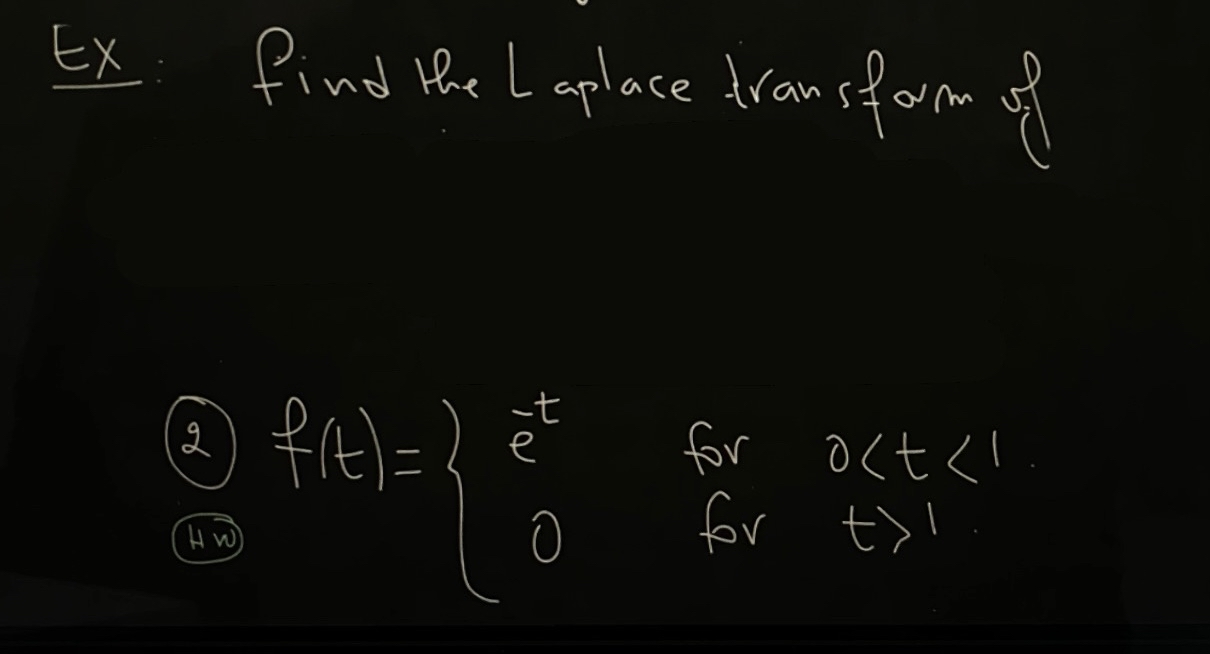 Ex: find the Laplace transform of
② f(t) = { e^-t for 0<t<1.
0 for t>1.
HW